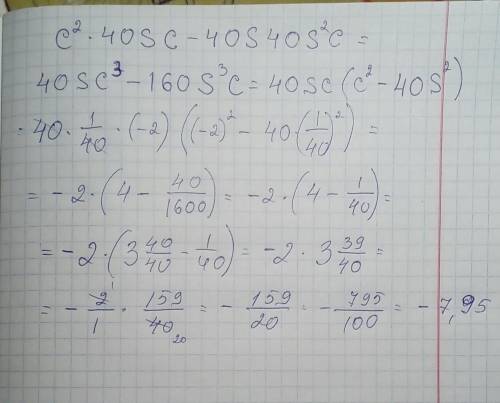 c² · 40sc − 40s40s²c =
40sc³ − 160s³c = 40sc (c² − 40s²)
· 40 · 1/40 · (−2) ((−2)² − 40 · (1/40)²) =
= −2 · (4 − 40/1600) = −2 · (4 − 1/40) =
= −2 · (3 40/40 − 1/40) = −2 · 3 39/40 =
= − 2¹/1 · 159/40₂₀ = − 159/20 = − 795/100 = − 7,95